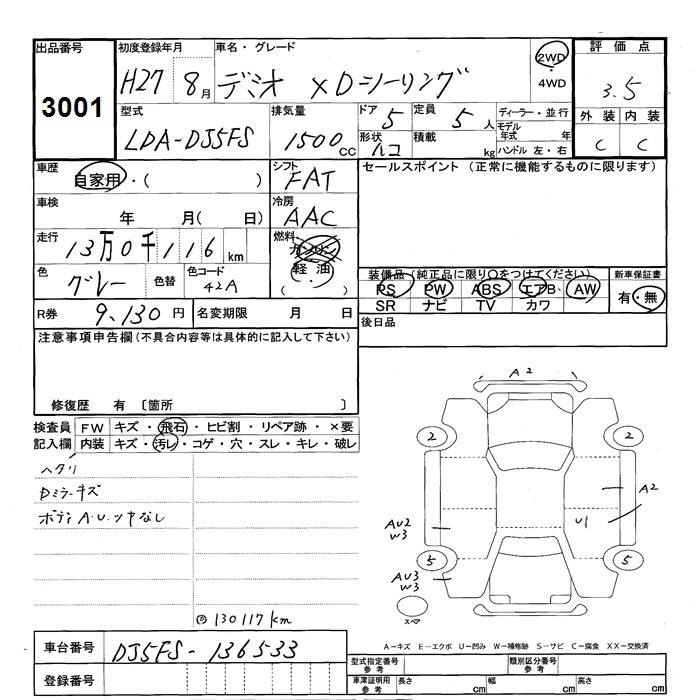 出品番号 初度登録年月 車名・グレード 2WD 評価点
3001 H27 8月 デミオ XDシーリング 4WD 3.5
型式 排気量 ドア 5 定員 5人 ディーラー・並行 外装 内装
LDA-DJ5FS 1500cc 形状 ハコ 積載 kg モデル年式 年 C C
ハンドル 左・右
車歴 自家用・( ) シフト FAT セールスポイント (正常に機能するものに限ります)
車検 年 月( 日) 冷房 AAC
走行 13万0千116km 燃料 ガソリン 軽油 ( ・ )
色 グレー 色替 色コード 42A
装備品(純正品に限り○をつけてください) 新車保証書
PS PW ABS エアB AW 有・無
SR ナビ TV カワ
R券 9,130円 名変期限 月 日 後日品
注意事項申告欄(不具合内容等は具体的に記入して下さい)
修復歴 有 〔箇所 〕
検査員 FW キズ・飛石・ヒビ割・リペア跡・×要
記入欄 内装 キズ・汚レ・コゲ・穴・スレ・キレ・破レ
ヘタリ
Dミラーキズ
ボディA.U.ツヤなし
130117km
A2
2 2
A2
U1
AU2
W3
5 5
AU3
W3
スペア
A−キズ E−エクボ U−凹み W−補修跡 S−サビ C−腐食 XX−交換済
車台番号 DJ5FS-136533
登録番号
型式指定番号 参考 類別区分番号 参考
車津証明用 参考 長さ cm 幅 cm 高さ cm